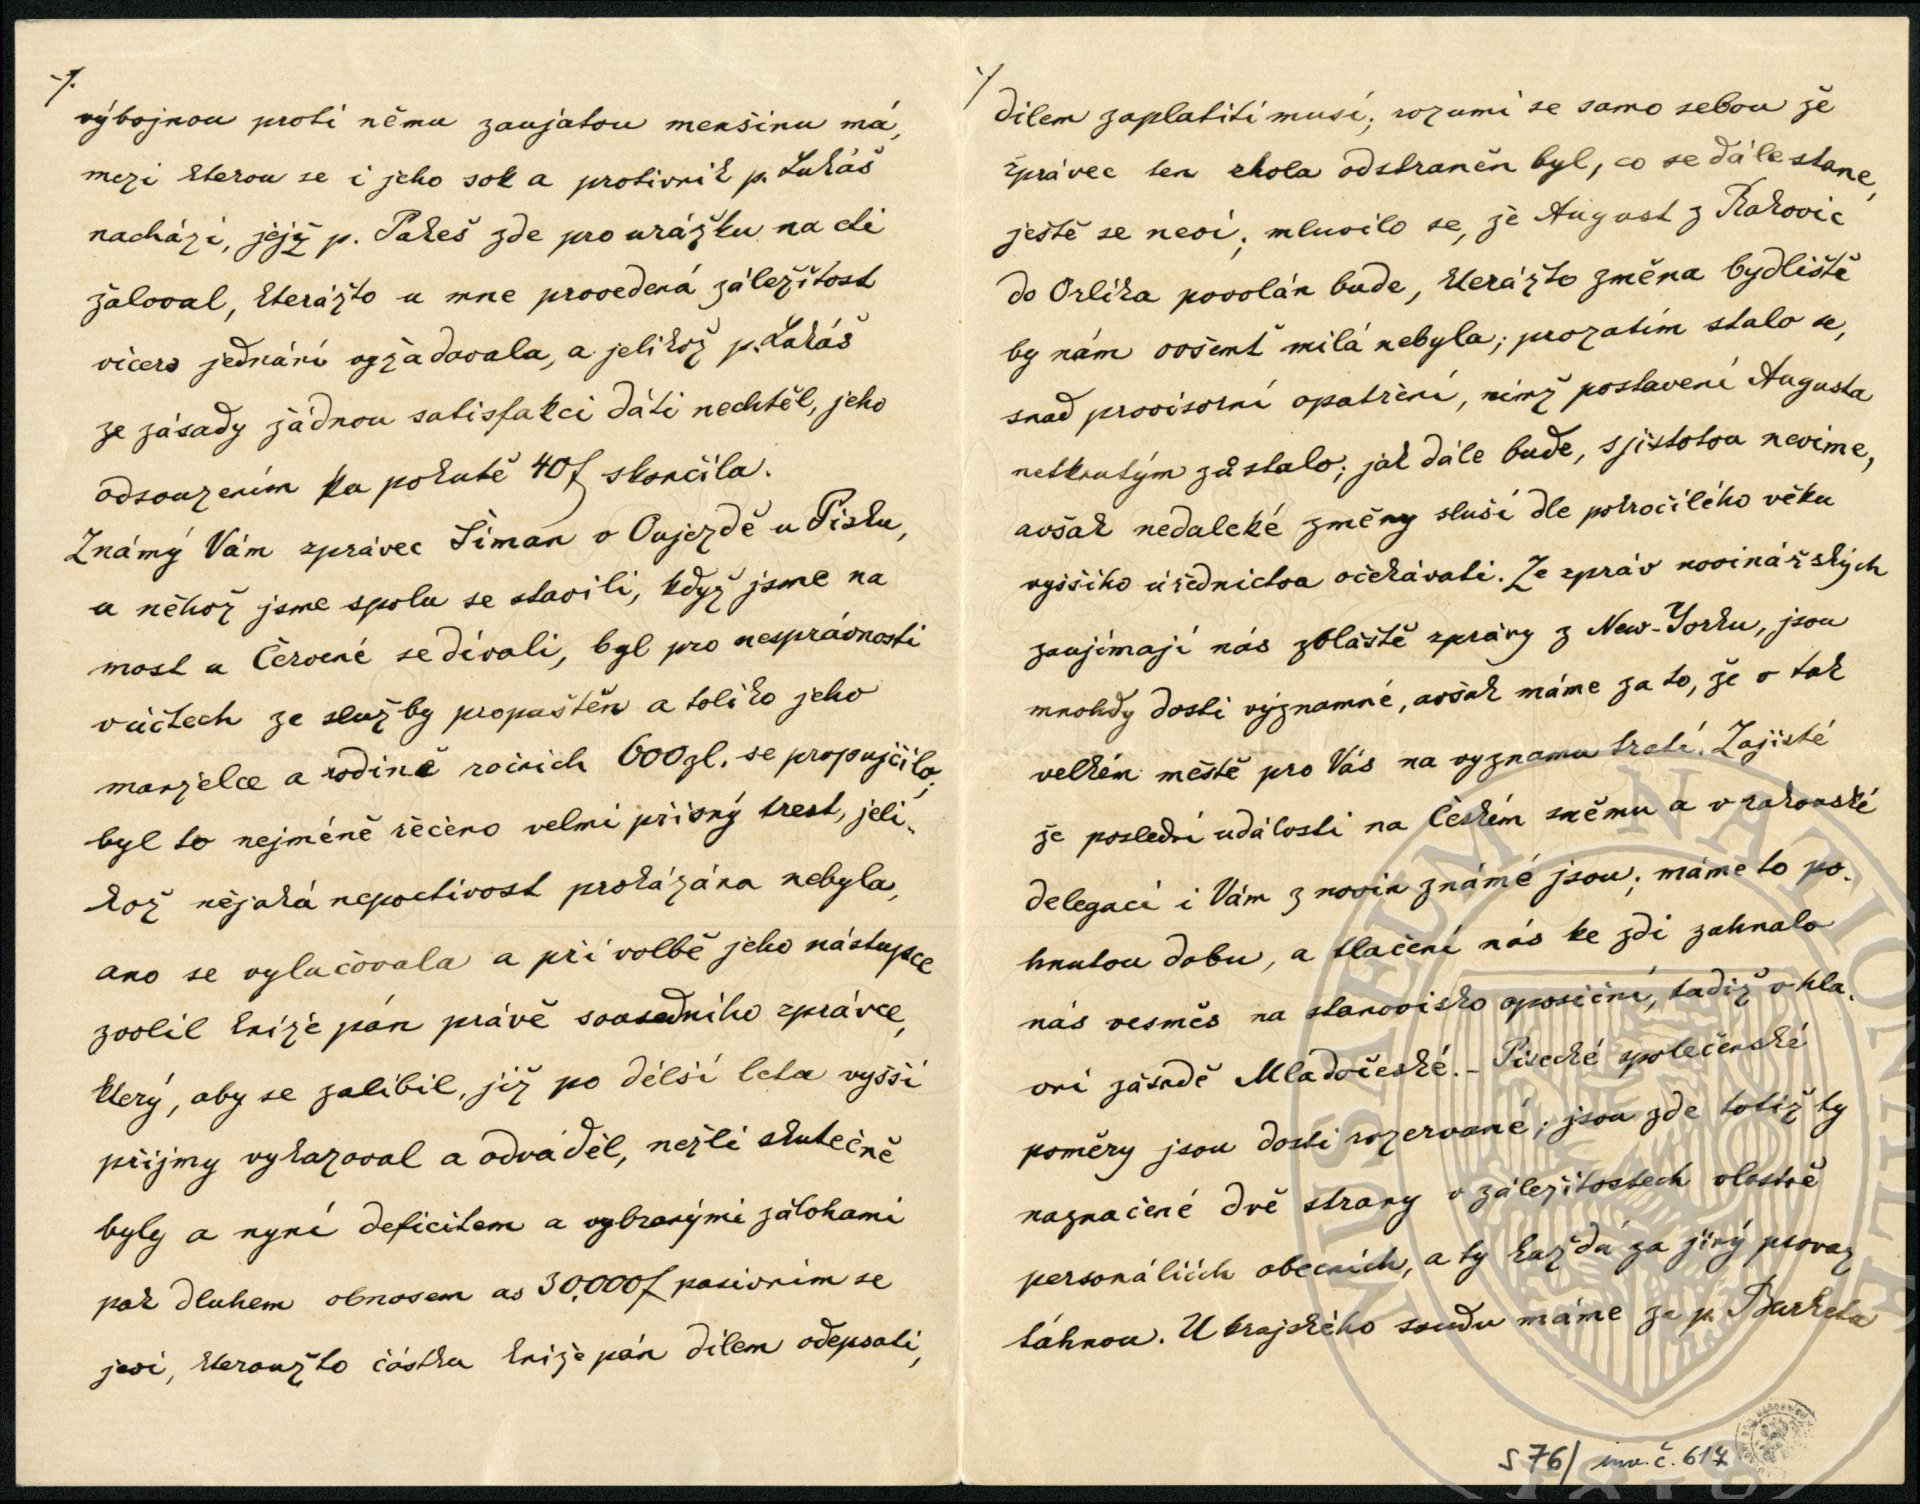 ·/.
výbojnou proti němu zaujatou menšinu má,
mezi kterou se i jeho sok a protivník p. Lukáš
nachází, jejž p. Pakeš zde pro urážku na cti
žaloval, kterážto u mne provedená záležitost
vícero jednání vyžadovala, a jelikož p. Lukáš
ze zásady žádnou satisfakci dáti nechtěl, jeho
odsouzením ku pokutě 40f skončila.
Známý Vám správec Šiman v Oujezdě u Písku,
u něhož jsme spolu se stavili, když jsme na
most u Červené se dívali, byl pro nesprávnosti
v účtech ze služby propuštěn a toliko jeho
manželce a rodině ročních 600 zl. se propůjčilo;
byl to nejméně řečeno velmi přísný trest, jeli-
kož nějaká nepoctivost prokázána nebyla,
ano se vylučovala a při volbě jeho nástupce
zvolil kníže pán právě sousedního správce,
který, aby se zalíbil, již po delší leta vyšší
příjmy vykazoval a odváděl, nežli skutečně
byly a nyní deficitem a vybranými zálohami
pak dluhem obnosem as 30.000f pasivním se
jeví, kteroužto částku kníže pán dílem odepsati,
·/
dílem zaplatiti musí; rozumí se samo sebou že
správec ten zkola odstraněn byl, co se dále stane,
ještě se neví; mluvilo se, že August z Rakovic
do Orlíka povolán bude, kterážto změna bydliště
by nám ovšemť milá nebyla; prozatím stalo se,
snad provisorní opatření, nímž postavení Augusta
netknutým zůstalo; jak dále bude, s jistotou nevíme,
avšak nedaleké změny sluší dle pokročilého věku
vyššího úřednictva očekávati. Ze zpráv novinářských
zaujímají nás zvláště zprávy z New-Yorku, jsou
mnohdy dosti významné, avšak máme za to, že v tak
velkém městě pro Vás na významu tratí. Zajisté
že poslední události na Českém sněmu a v rakouské
delegaci i Vám z novin známé jsou; máme to po-
hnutou dobu, a tlačení nás ke zdi zahnalo
nás vesměs na stanovisko oposiční, tudíž v hla-
vní zásadě Mladočeské. – Písecké společenské
poměry jsou dosti rozervané; jsou zde totiž ty
naznačené dvě strany v záležitostech vlastně
personáliích obecních, a ty každá za jiný provaz
táhnou. U krajského soudu máme za p. Burketa
S 76/ inv. č. 617
MUSAEUM NATIONALE
1818